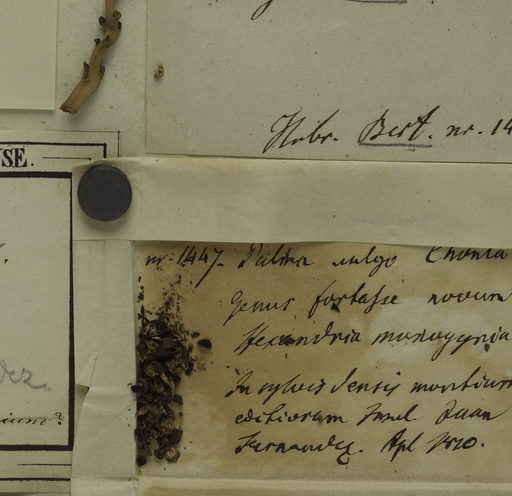 Habr. Bert. nr. 14
USE.
nr. 1447. Palma vulgo Chonta
Genus fortasse novum
Hexandria monogynia
In sylvis densis montium
editiorum Insul Juan
Fernandez. Apl 1830.
dez.